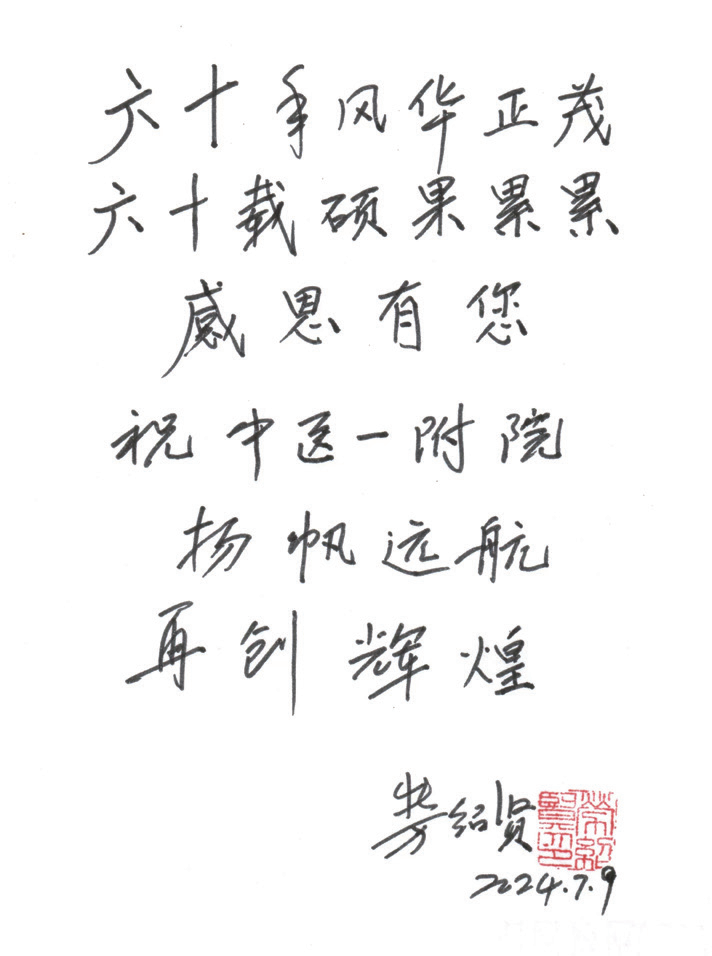 六十年风华正茂
六十载硕果累累
感恩有您
祝中医一附院
扬帆远航
再创辉煌
劳绍贤
劳绍贤印
2024.7.9